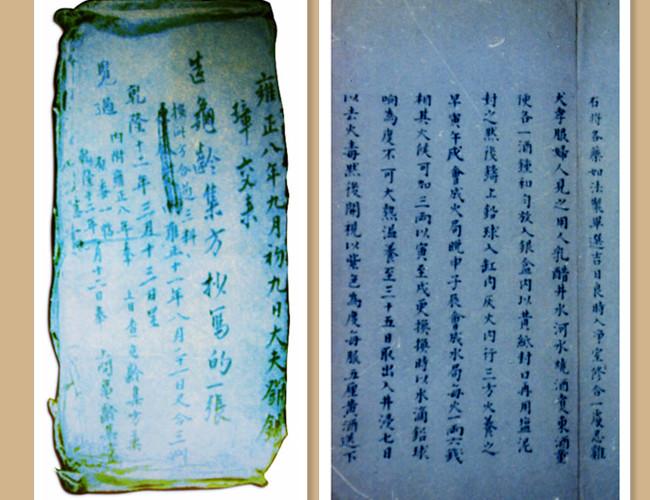 雍正八年九月初九日大夫
璋交来
造龜齡集方 抄寫的一張
按此方合過三料
雍正十一年八月二十一日又合三料
乾隆十二年三月十三日呈
覽過
內附雍正八年奉
上旨查龜齡集方
右將各藥如法製畢選吉日良時入淨室修合一處忌雞
犬孝服婦人見之用人乳醋井水河水燒酒黃東酒童
便各一酒鐘和勻放入銀盒內以黃紙封口再用鹽泥
封之然後鑄上鉛球入缸內灰火內行三方火養之
早寅午戌會成火局晚申子辰會成水局每火一兩六錢
相其火候可加三兩以寅至戌更換換時以水滴鉛球
响為度不可大熱溫養至三十五日取出入井浸七日
以去火毒然後開視以紫色為度每服五厘黃酒送下